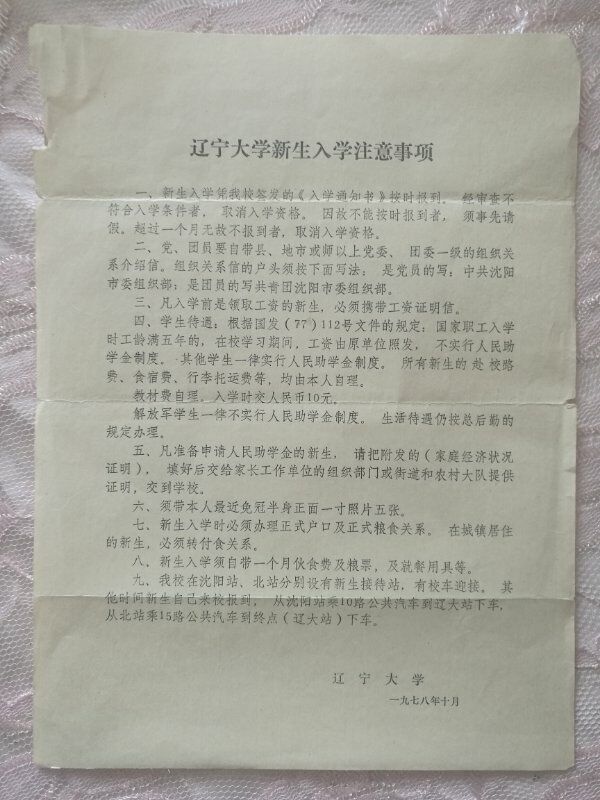 辽宁大学新生入学注意事项
一、新生入学凭我校签发的《入学通知书》按时报到。经审查不
符合入学条件者，取消入学资格。因故不能按时报到者，须事先请
假。超过一个月无故不报到者，取消入学资格。
二、党、团员要自带县、地市或师以上党委、团委一级的组织关
系介绍信。组织关系信的户头须按下面写法：是党员的写：中共沈阳
市委组织部；是团员的写共青团沈阳市委组织部。
三、凡入学前是领取工资的新生，必须携带工资证明信。
四、学生待遇：根据国发（77）112号文件的规定：国家职工入学
时工龄满五年的，在校学习期间，工资由原单位照发，不实行人民助
学金制度。其他学生一律实行人民助学金制度。所有新生的赴校路
费、食宿费、行李托运费等，均由本人自理。
教材费自理。入学时交人民币10元。
解放军学生一律不实行人民助学金制度。生活待遇仍按总后勤的
规定办理。
五、凡准备申请人民助学金的新生，请把附发的（家庭经济状况
证明），填好后交给家长工作单位的组织部门或街道和农村大队提供
证明，交到学校。
六、须带本人最近免冠半身正面一寸照片五张。
七、新生入学时必须办理正式户口及正式粮食关系。在城镇居住
的新生，必须转付食关系。
八、新生入学须自带一个月伙食费及粮票，及就餐用具等。
九、我校在沈阳站、北站分别设有新生接待站，有校车迎接。其
他时间新生自己来校报到，从沈阳站乘10路公共汽车到辽大站下车，
从北站乘15路公共汽车到终点（辽大站）下车。
辽宁大学
一九七八年十月